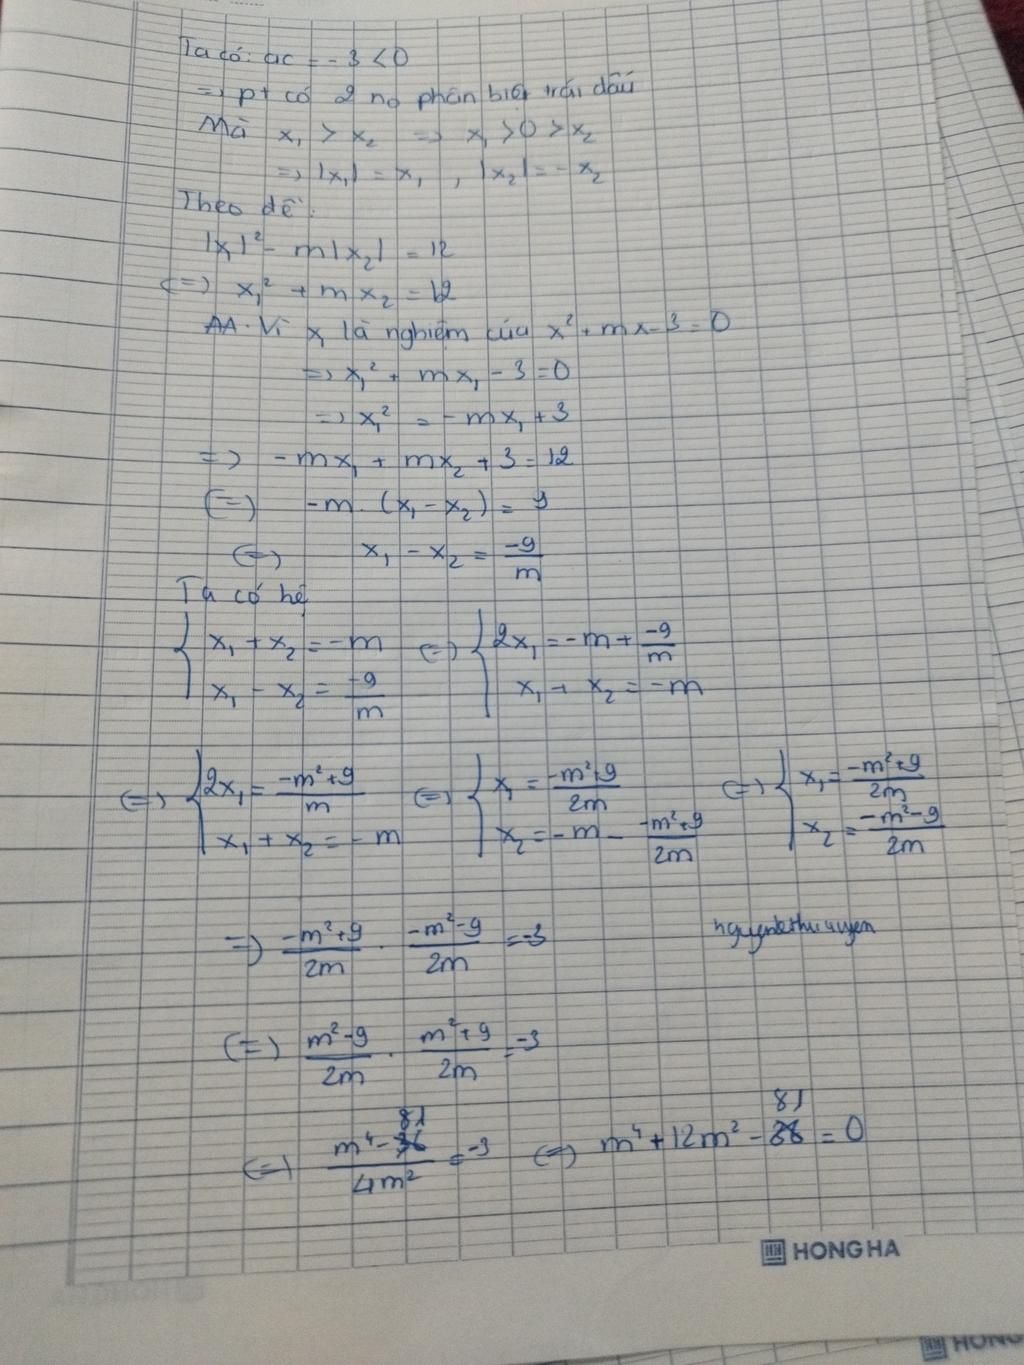 Ta có: ac = -3 < 0
=> pt có 2 no phân biệt trái dấu
Mà x₁ > x₂ => x₁ > 0 > x₂
=> |x₁| = x₁ , |x₂| = -x₂
Theo đề:
|x₁|² - m|x₂| = 12
<=> x₁² + mx₂ = 12
Vì x₁ là nghiệm của x² + mx - 3 = 0
=> x₁² + mx₁ - 3 = 0
=> x₁² = -mx₁ + 3
=> -mx₁ + mx₂ + 3 = 12
<=> -m. (x₁ - x₂) = 9
<=> x₁ - x₂ = -9/m
Ta có hệ
{ x₁ + x₂ = -m <=> { 2x₁ = -m + -9/m
x₁ - x₂ = -9/m x₁ + x₂ = -m
<=> { 2x₁ = -m²+9/m <=> { x₁ = -m²+9/2m <=> { x₁ = -m²+9/2m
x₁ + x₂ = -m x₂ = -m - -m²+9/2m x₂ = -m²-9/2m
=> -m²+9/2m . -m²-9/2m = -3
<=> m²-9/2m . m²+9/2m = -3
<=> m⁴-81/4m² = -3 <=> m⁴ + 12m² - 81 = 0
HONG HA
HONG HA